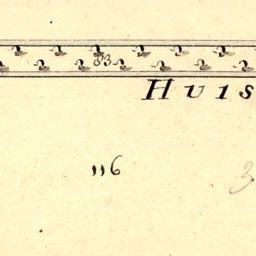 83
Huis
116
3